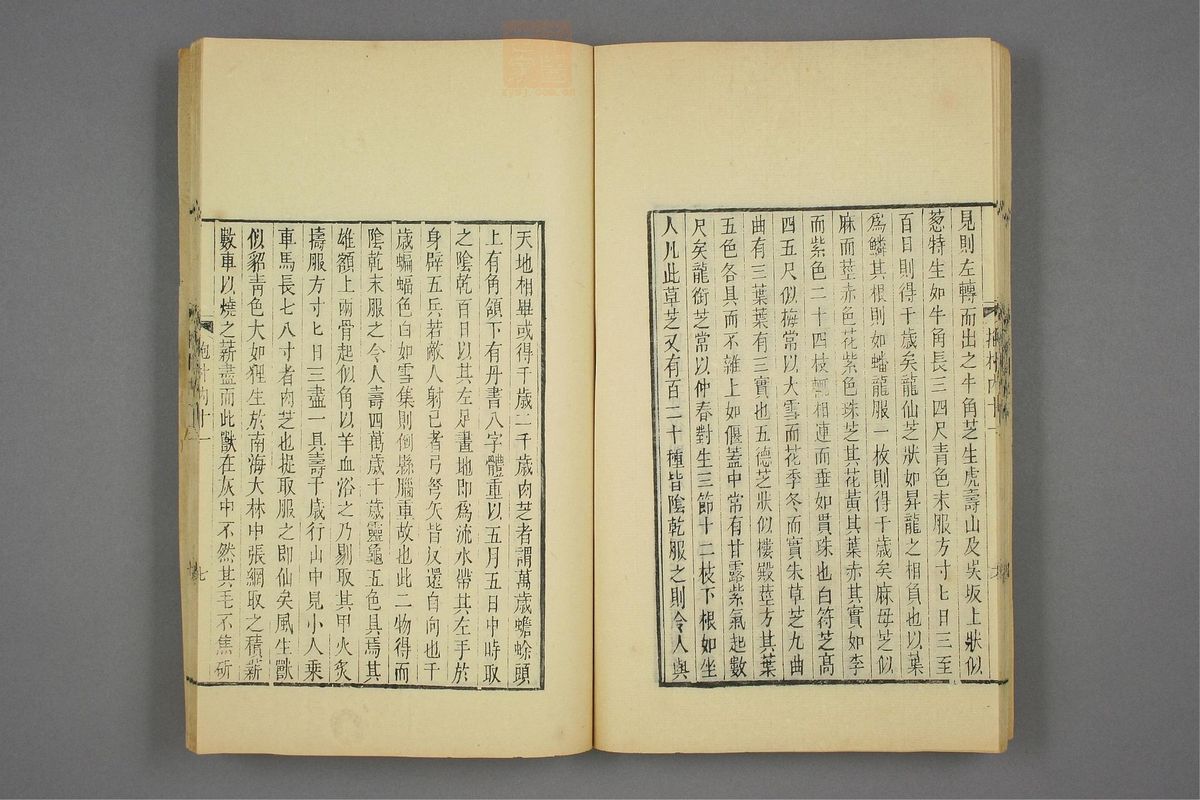 見則左轉而出之牛角芝生虎壽山及吳坂上狀似
葱特生如牛角長三四尺青色末服方寸匕日三至
百日則得千歲矣龍仙芝狀如昇龍之相負也以葉
爲鱗其根則如蟠龍服一枚則得千歲矣麻母芝似
麻而莖赤色花紫色珠芝其花黃其葉赤其實如李
而紫色二十四枝輒相連而垂如貫珠也白符芝高
四五尺似梅常以大雪而花季冬而實朱草芝九曲
曲有三葉葉有三實也五德芝狀似樓殿莖方其葉
五色各具而不雜上如偃蓋中常有甘露紫氣起數
尺矣龍銜芝常以仲春對生三節十二枝下根如坐
人凡此草芝又有百二十種皆陰乾服之則令人與
天地相畢或得千歲二千歲肉芝者謂萬歲蟾蜍頭
上有角頷下有丹書八字體重以五月五日中時取
之陰乾百日以其左足畫地即爲流水帶其左手於
身辟五兵若敵人射已者弓弩矢皆反還自向也千
歲蝙蝠色白如雪集則倒縣腦重故也此二物得而
陰乾末服之令人壽四萬歲千歲靈龜五色具焉其
雄額上兩骨起似角以羊血浴之乃剔取其甲火炙
擣服方寸匕日三盡一具壽千歲行山中見小人乘
車馬長七八寸者肉芝也捉取服之即仙矣風生獸
似貂青色大如狸生於南海大林中張網取之積薪
數車以燒之薪盡而此獸在灰中不然其毛不焦斫
抱朴內十一
七